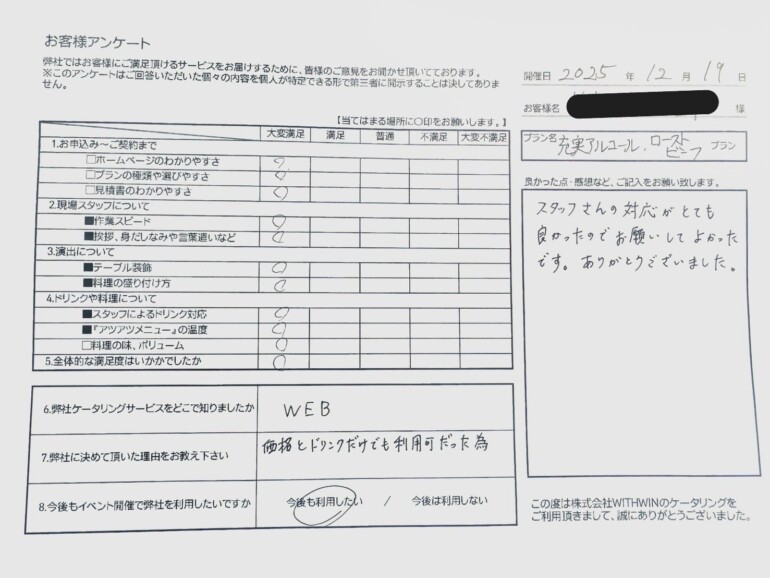 お客様アンケート
弊社ではお客様にご満足頂けるサービスをお届けするために、皆様のご意見をお聞かせ頂いております。
※このアンケートはご回答いただいた個々の内容を個人が特定できる形で第三者に開示することは決してありま
せん。
開催日 2025 年 12 月 19 日
お客様名 様
プラン名 充実アルコール、ローストビーフ プラン
【当てはまる場所に○印をお願いします。】
大変満足 満足 普通 不満足 大変不満足
1.お申込み～ご契約まで
□ホームページのわかりやすさ ○
□プランの種類や選びやすさ ○
□見積書のわかりやすさ ○
2.現場スタッフについて
■作業スピード ○
■挨拶、身だしなみや言葉遣いなど ○
3.演出について
■テーブル装飾 ○
■料理の盛り付け方 ○
4.ドリンクや料理について
■スタッフによるドリンク対応 ○
■『アツアツメニュー』の温度 ○
□料理の味、ボリューム ○
5.全体的な満足度はいかがでしたか ○
6.弊社ケータリングサービスをどこで知りましたか WEB
7.弊社に決めて頂いた理由をお教え下さい 価格とドリンクだけでも利用可だった為
8.今後もイベント開催で弊社を利用したいですか 今後も利用したい / 今後は利用しない
良かった点・感想など、ご記入をお願い致します。
スタッフさんの対応がとても
良かったのでお願いしてよかった
です。ありがとうございました。
この度は株式会社WITHWINのケータリングを
ご利用頂きまして、誠にありがとうございました。